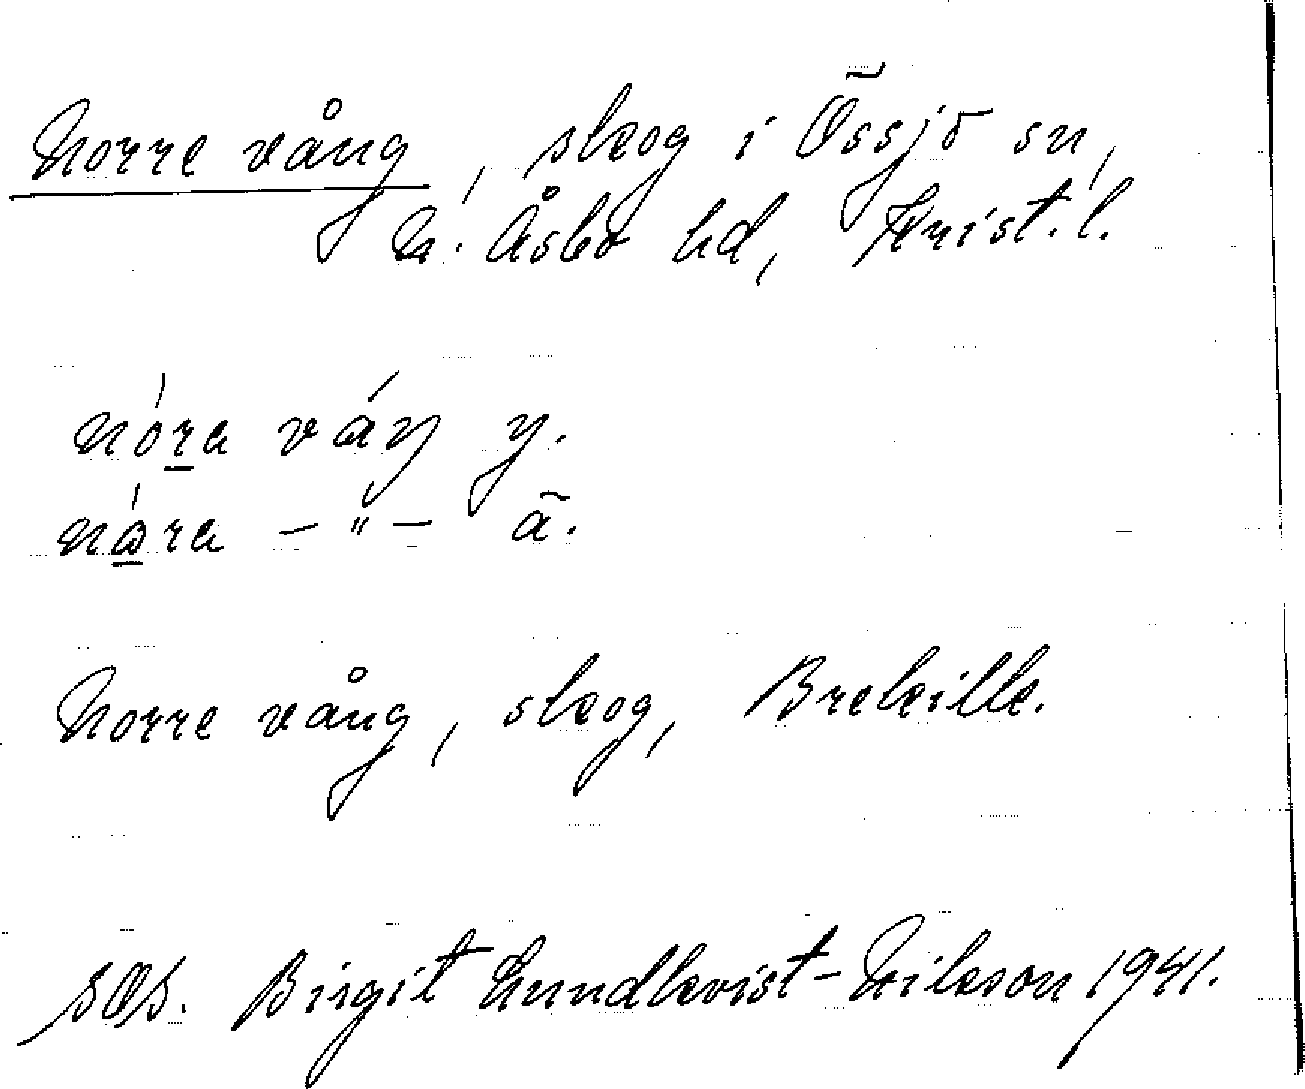 Norre vång, skog i Össjö sn,
N. Åsbo hd, Krist. l.
nóra váŋ y.
nåra – " – ä.
Norre vång, skog, Brekille.
Birgit Lundkvist-Nilsson 1941.